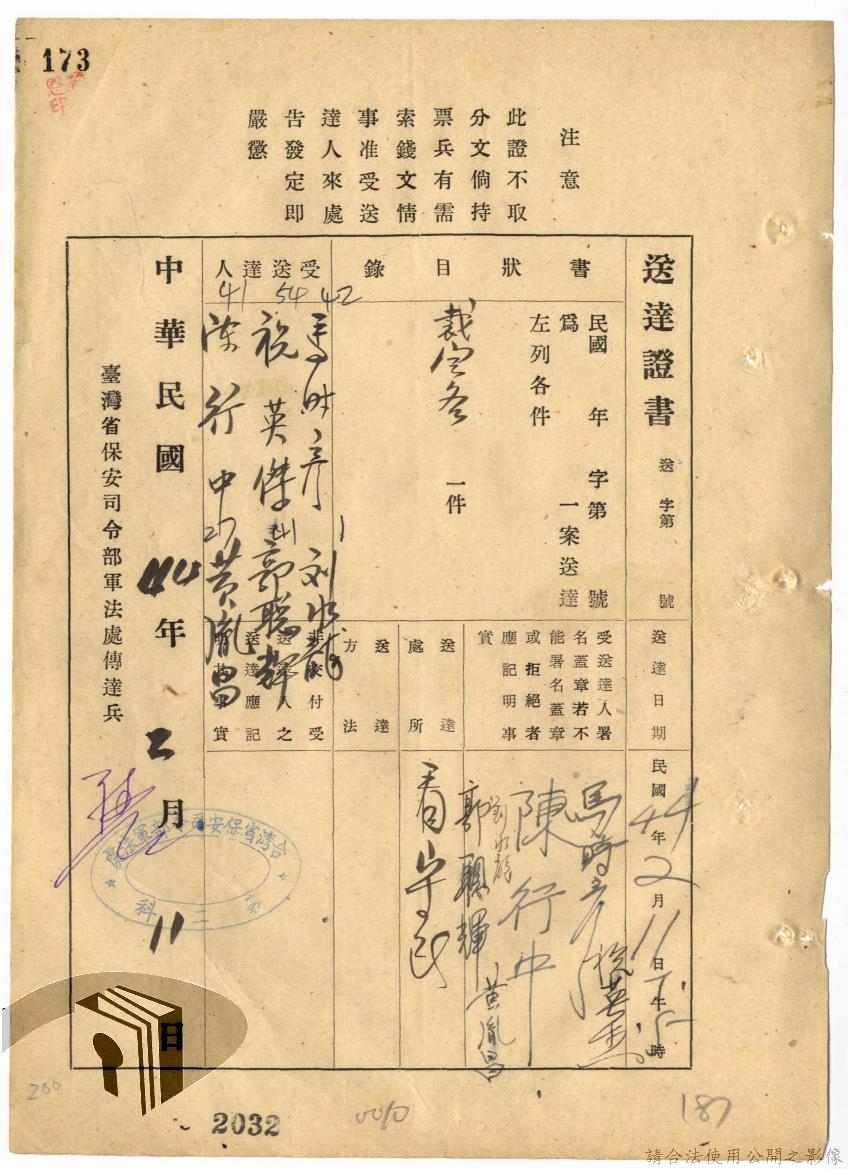 173
注意
此證不取
分文倘持
票兵有需
索錢文情
事准受送
達人來處
告發定即
嚴懲
送達證書
送 字第 號
書狀目錄
民國 年 字第 號
為 一案送達
左列各件
裁定各 一件
受送達人
42
馬時彥
1
刘水龍
54
祝英傑
41
郭聰輝
41
陳行中
27
黃胤昌
送達日期
民國44年2月11日下午5時
受送達人署
名蓋章若不
能署名蓋章
或拒絕者
應記明事
實
馬時彥
祝英杰
陳行中
劉水龍
郭聰輝
黃胤昌
送達處所
看守所
送達方法
非交付受
送達人之
送達應記
明其事實
中華民國44年2月11日
臺灣省保安司令部軍法處傳達兵
台灣省保安司令部軍法處
第二科
200
2032
0010
187
請合法使用公開之影像